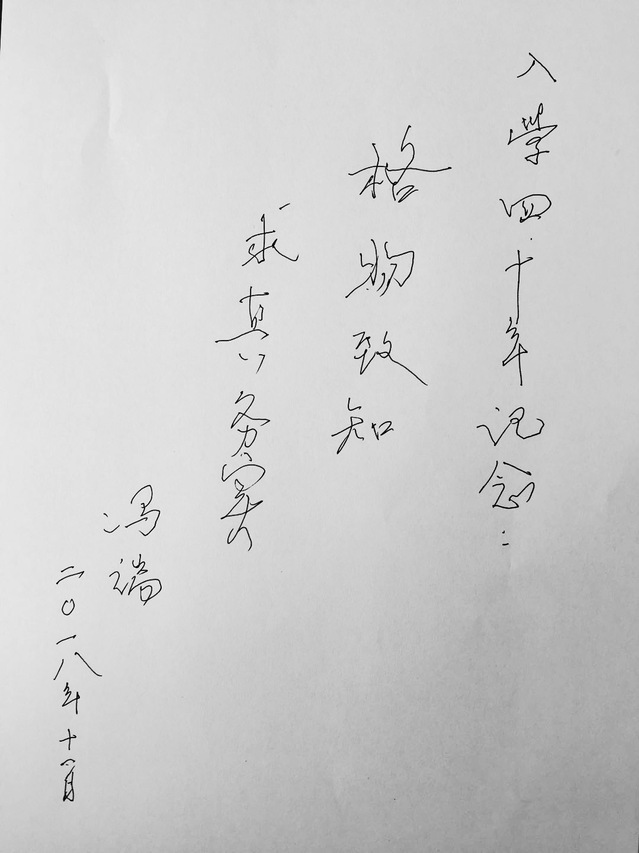 入學四十年记念：
格物致知
求真务实
冯端
二〇一八年十一月